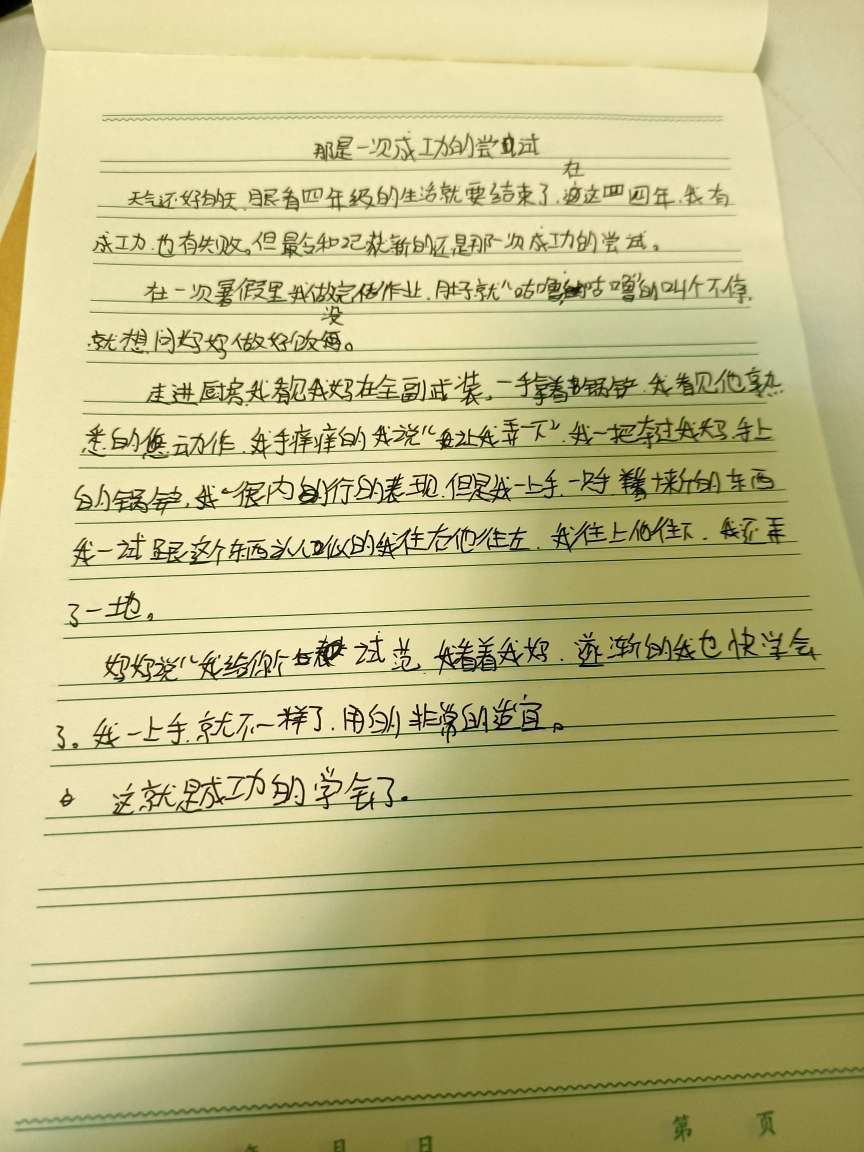 那是一次成功的尝试
天气还好的天,眼看四年级的生活就要结束了,在这四年,我有
成功,也有失败。但最令和记犹新的还是那一次成功的尝试。
在一次暑假里我做完作业,肚子就“咕噜咕噜”的叫个不停,
就想问妈妈做好饭没。
走进厨房,我看见我妈在全副武装,一手拿着锅铲,我看见他熟
悉的动作,我手痒痒的我说“让我弄一下”,我一把夺过我妈手上
的锅铲,我“很内行的表现,但是我一上手,一只手 的东西
我一试跟这个东西认似的我往右他往左,我往上他往下,我还弄
了一地。
妈妈说“我给你个试范,我看着我妈,逐渐的我也快学会
了。我一上手,就不一样了,用的非常的适宜。
这就是成功的学会了。
第 页
月 日